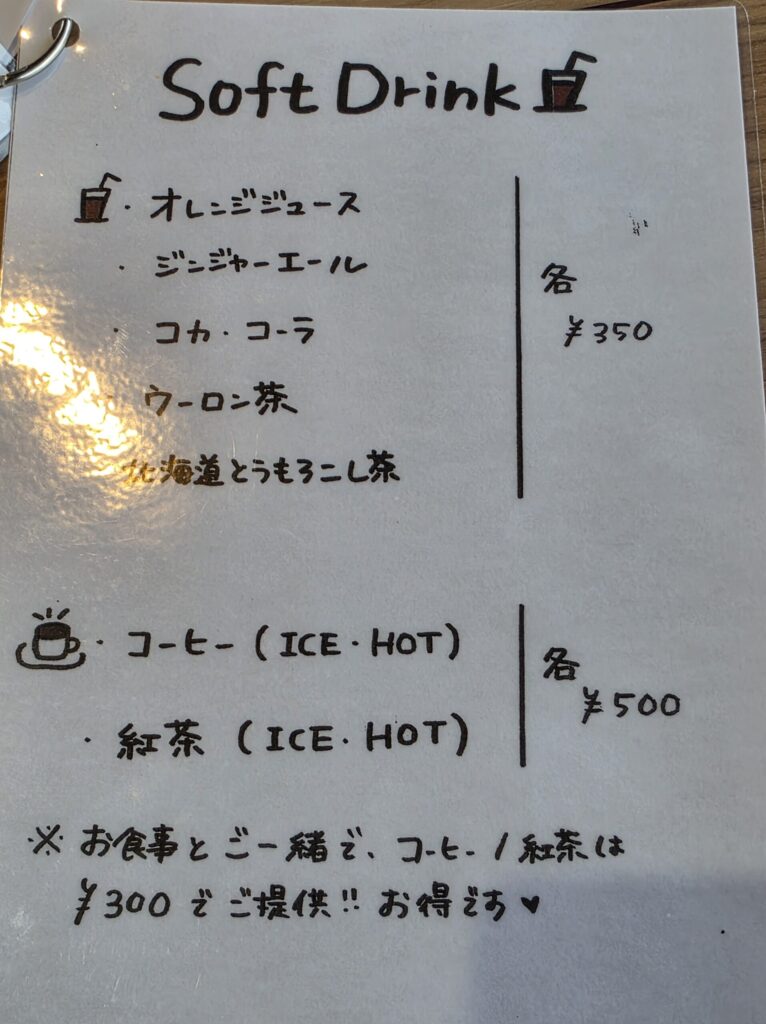 Soft Drink
・オレンジジュース
・ジンジャーエール
・コカ・コーラ
ウーロン茶
北海道とうもろこし茶
各
¥350
・コーヒー(ICE・HOT)
・紅茶(ICE・HOT)
各
¥500
※お食事とご一緒で、コーヒー/紅茶は
¥300でご提供!!お得です♥